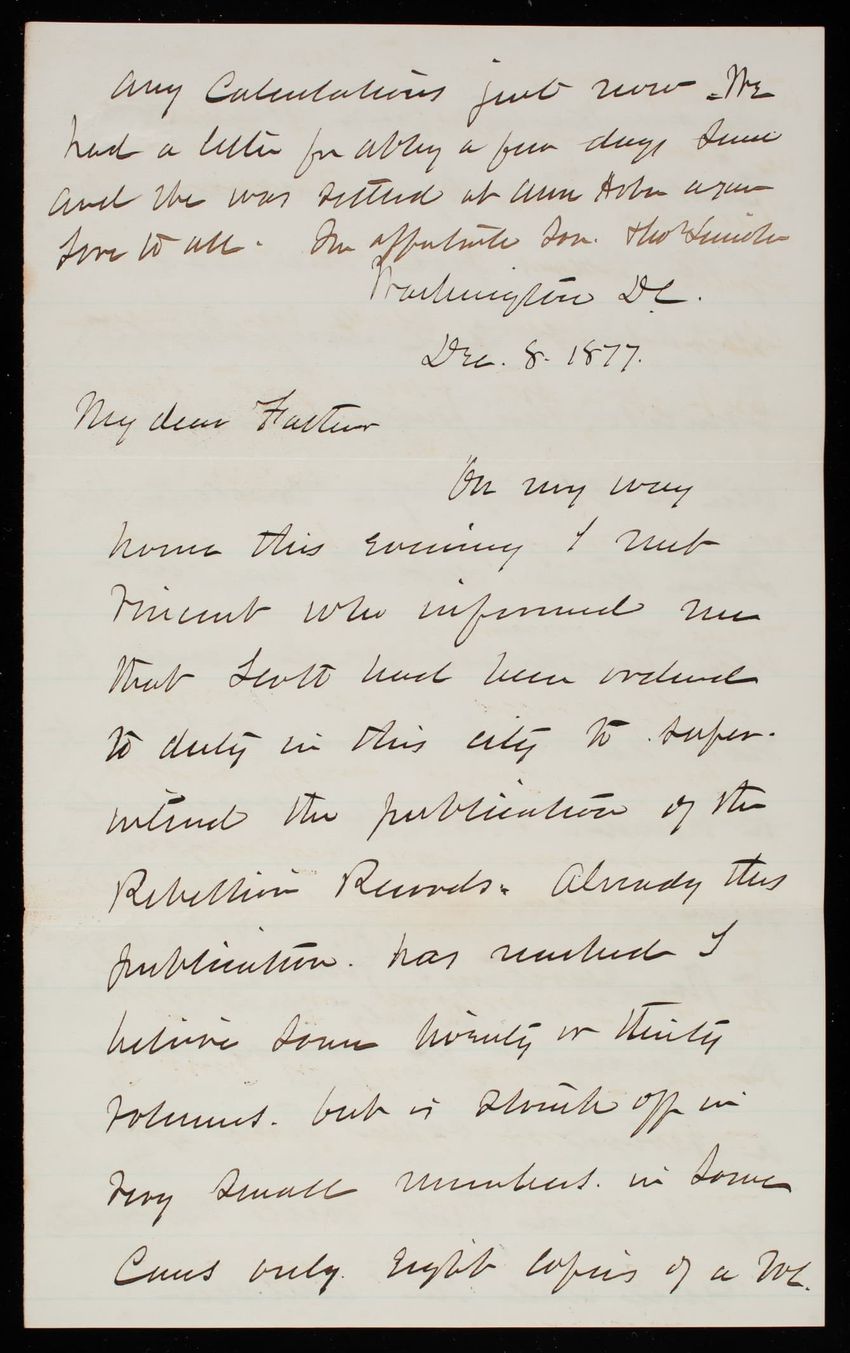 any Calculations just now - We
had a letter fr Abby a few days since
and she was settled at Ann Arbor again
Love to all. Yr affectionate Son. Thos Lincoln
Washington DC.
Dec. 8. 1877.
My dear Father
On my way
home this evening I met
Vincent who informed me
that Scott had been ordered
to duty in this city to super-
intend the publication of the
Rebellion Records. Already this
publication. has reached I
believe some twenty or thirty
volumes. but is struck off in
very small numbers. in some
Cases only. Eight Copies of a Vol.